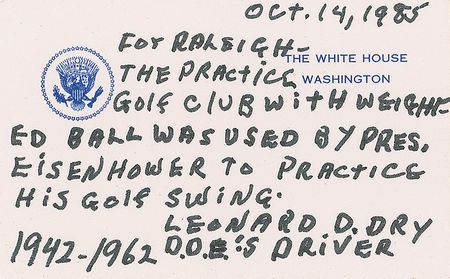 OCT. 14, 1985
FOR RALEIGH-
THE WHITE HOUSE
THE PRACTICE
WASHINGTON
GOLF CLUB WITH WEIGHT-
ED BALL WAS USED BY PRES.
EISENHOWER TO PRACTICE
HIS GOLF SWING.
LEONARD D. DRY
1942-1962 D.D.E.'S DRIVER